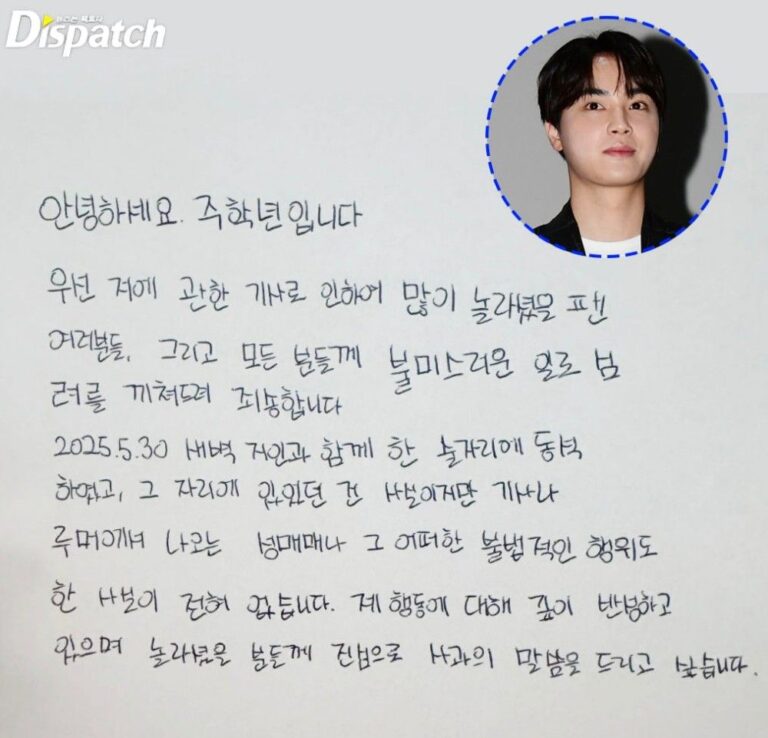 Dispatch
안녕하세요. 주학년입니다
우선 저에 관한 기사로 인하여 많이 놀라셨을 팬
여러분들, 그리고 모든 분들께 불미스러운 일로 심
려를 끼쳐드려 죄송합니다
2025.5.30 새벽 지인과 함께 한 술자리에 동석
하였고, 그 자리에 있었던 건 사실이지만 기사나
루머에서 나오는 성매매나 그 어떠한 불법적인 행위도
한 사실이 전혀 없습니다. 제 행동에 대해 깊이 반성하고
있으며 놀라셨을 분들께 진심으로 사과의 말씀을 드리고 싶습니다.